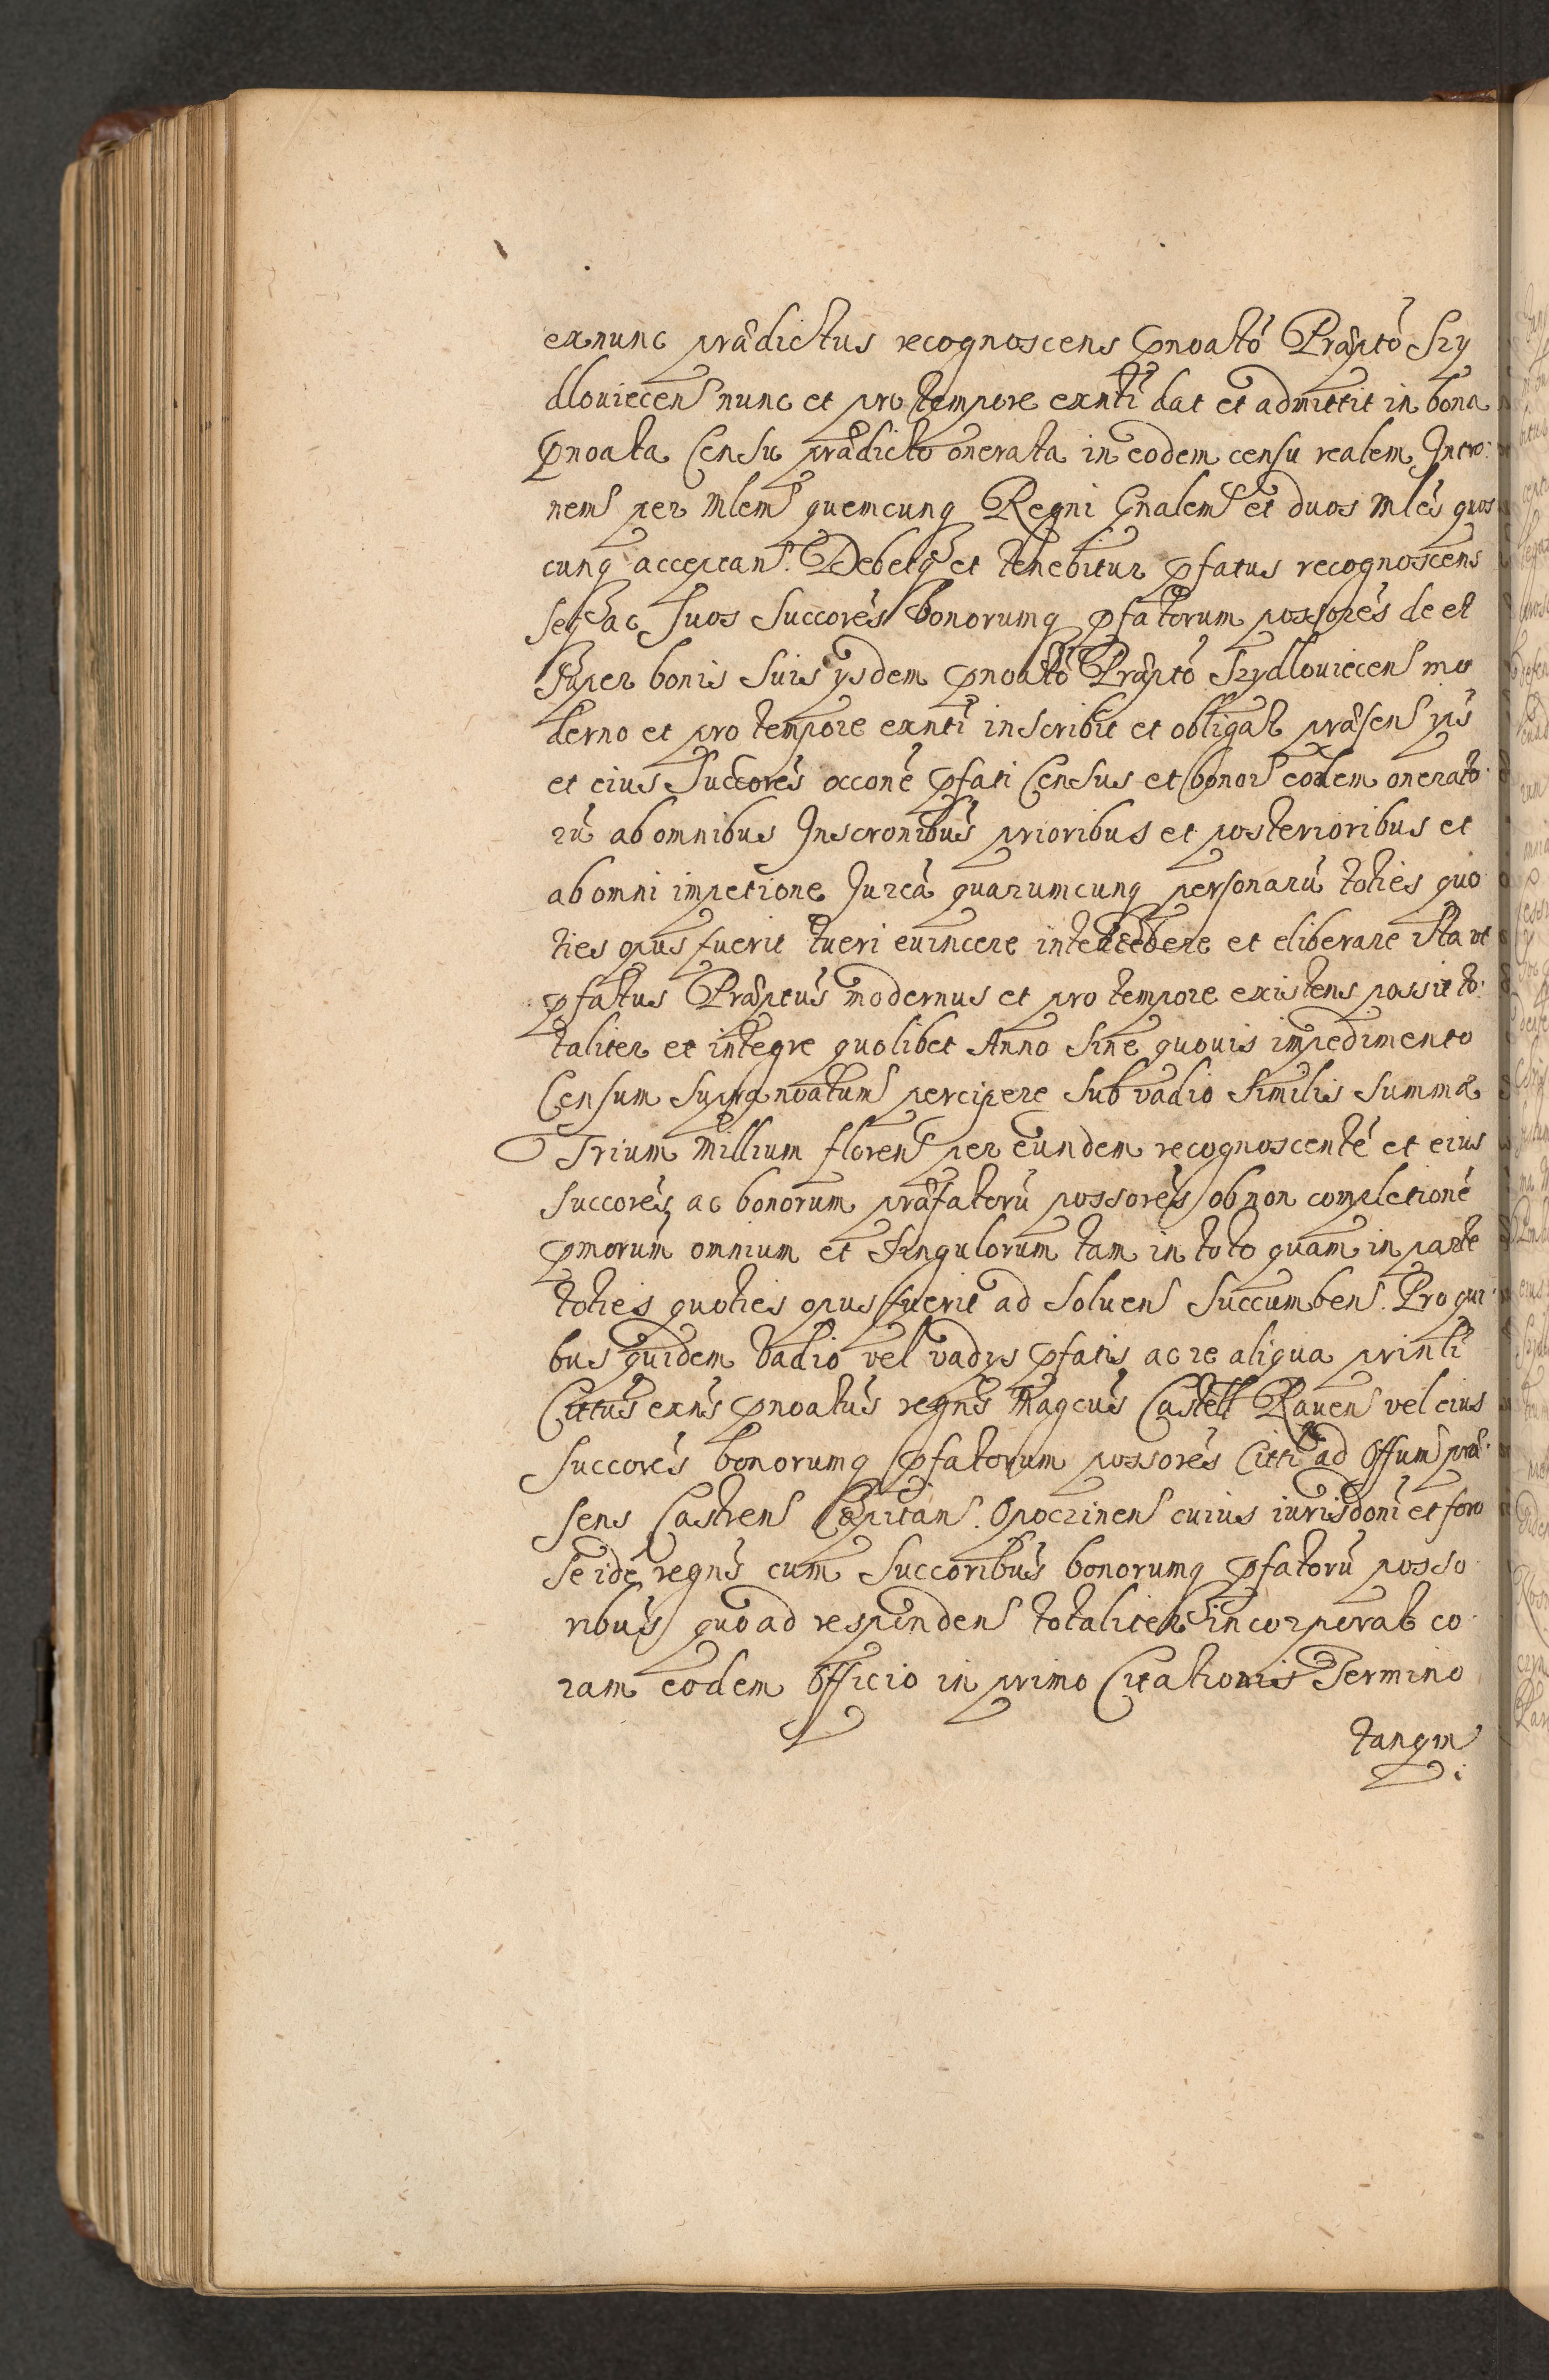 exnunc prædictus recognoscens pnoató Præptó Szy
dlouiecens nunc et pro tempore exnti dat et admittit in bona
pnoata Censu prædicto onerata in eodem censu realem Intro:
nem per Mlem quemcunq Regni Gnalem et duos Mles quos
cunq acceptan. Debetq et tenebitur pfatus recognoscens
seq ac suos Succores bonorumq pfatorum possores de et
super bonis suis ysdem pnoató Præptó Szydlouiecens mo
derno et pro tempore exnti inscribit et obligat præsens
et eius Succores occone pfati Census et bonor eodem onerato
rú ab omnibus Inscronibus prioribus et posterioribus et
ab omni impetione Jurea quarumcunq personarú toties quo
ties opus fuerit tueri euincere intercedere et eliberare ita ut
pfatus Præptus modernus et pro tempore existens possit to:
taliter et integre quolibet Anno sine quouis impedimento
Censum supranoatum percipere sub vadio similis summæ
Trium Millium floren per eundem recognoscenté et eius
succores ac bonorum præfatorú possores ob non completioné
pmorum omnium et singulorum tam in toto quam in parte
toties quoties opus fuerit ad soluen succumben. Pro qui
bus quidem vadio vel vadys pfatis ac re aliqua prinli
Cittus exns pnoatus regns Magcus Castell Rauen vel eius
succores bonorumq pfatorum possores Citti ad Offum præ
sens Castren Capitan. Opoczinen cuius iurisdoni et foro
se idé regns cum Succoribus bonorumq pfatorú posso
ribus quoad responden totaliter incorporat co
ram eodem Officio in primo Citationis Termino
tanqm